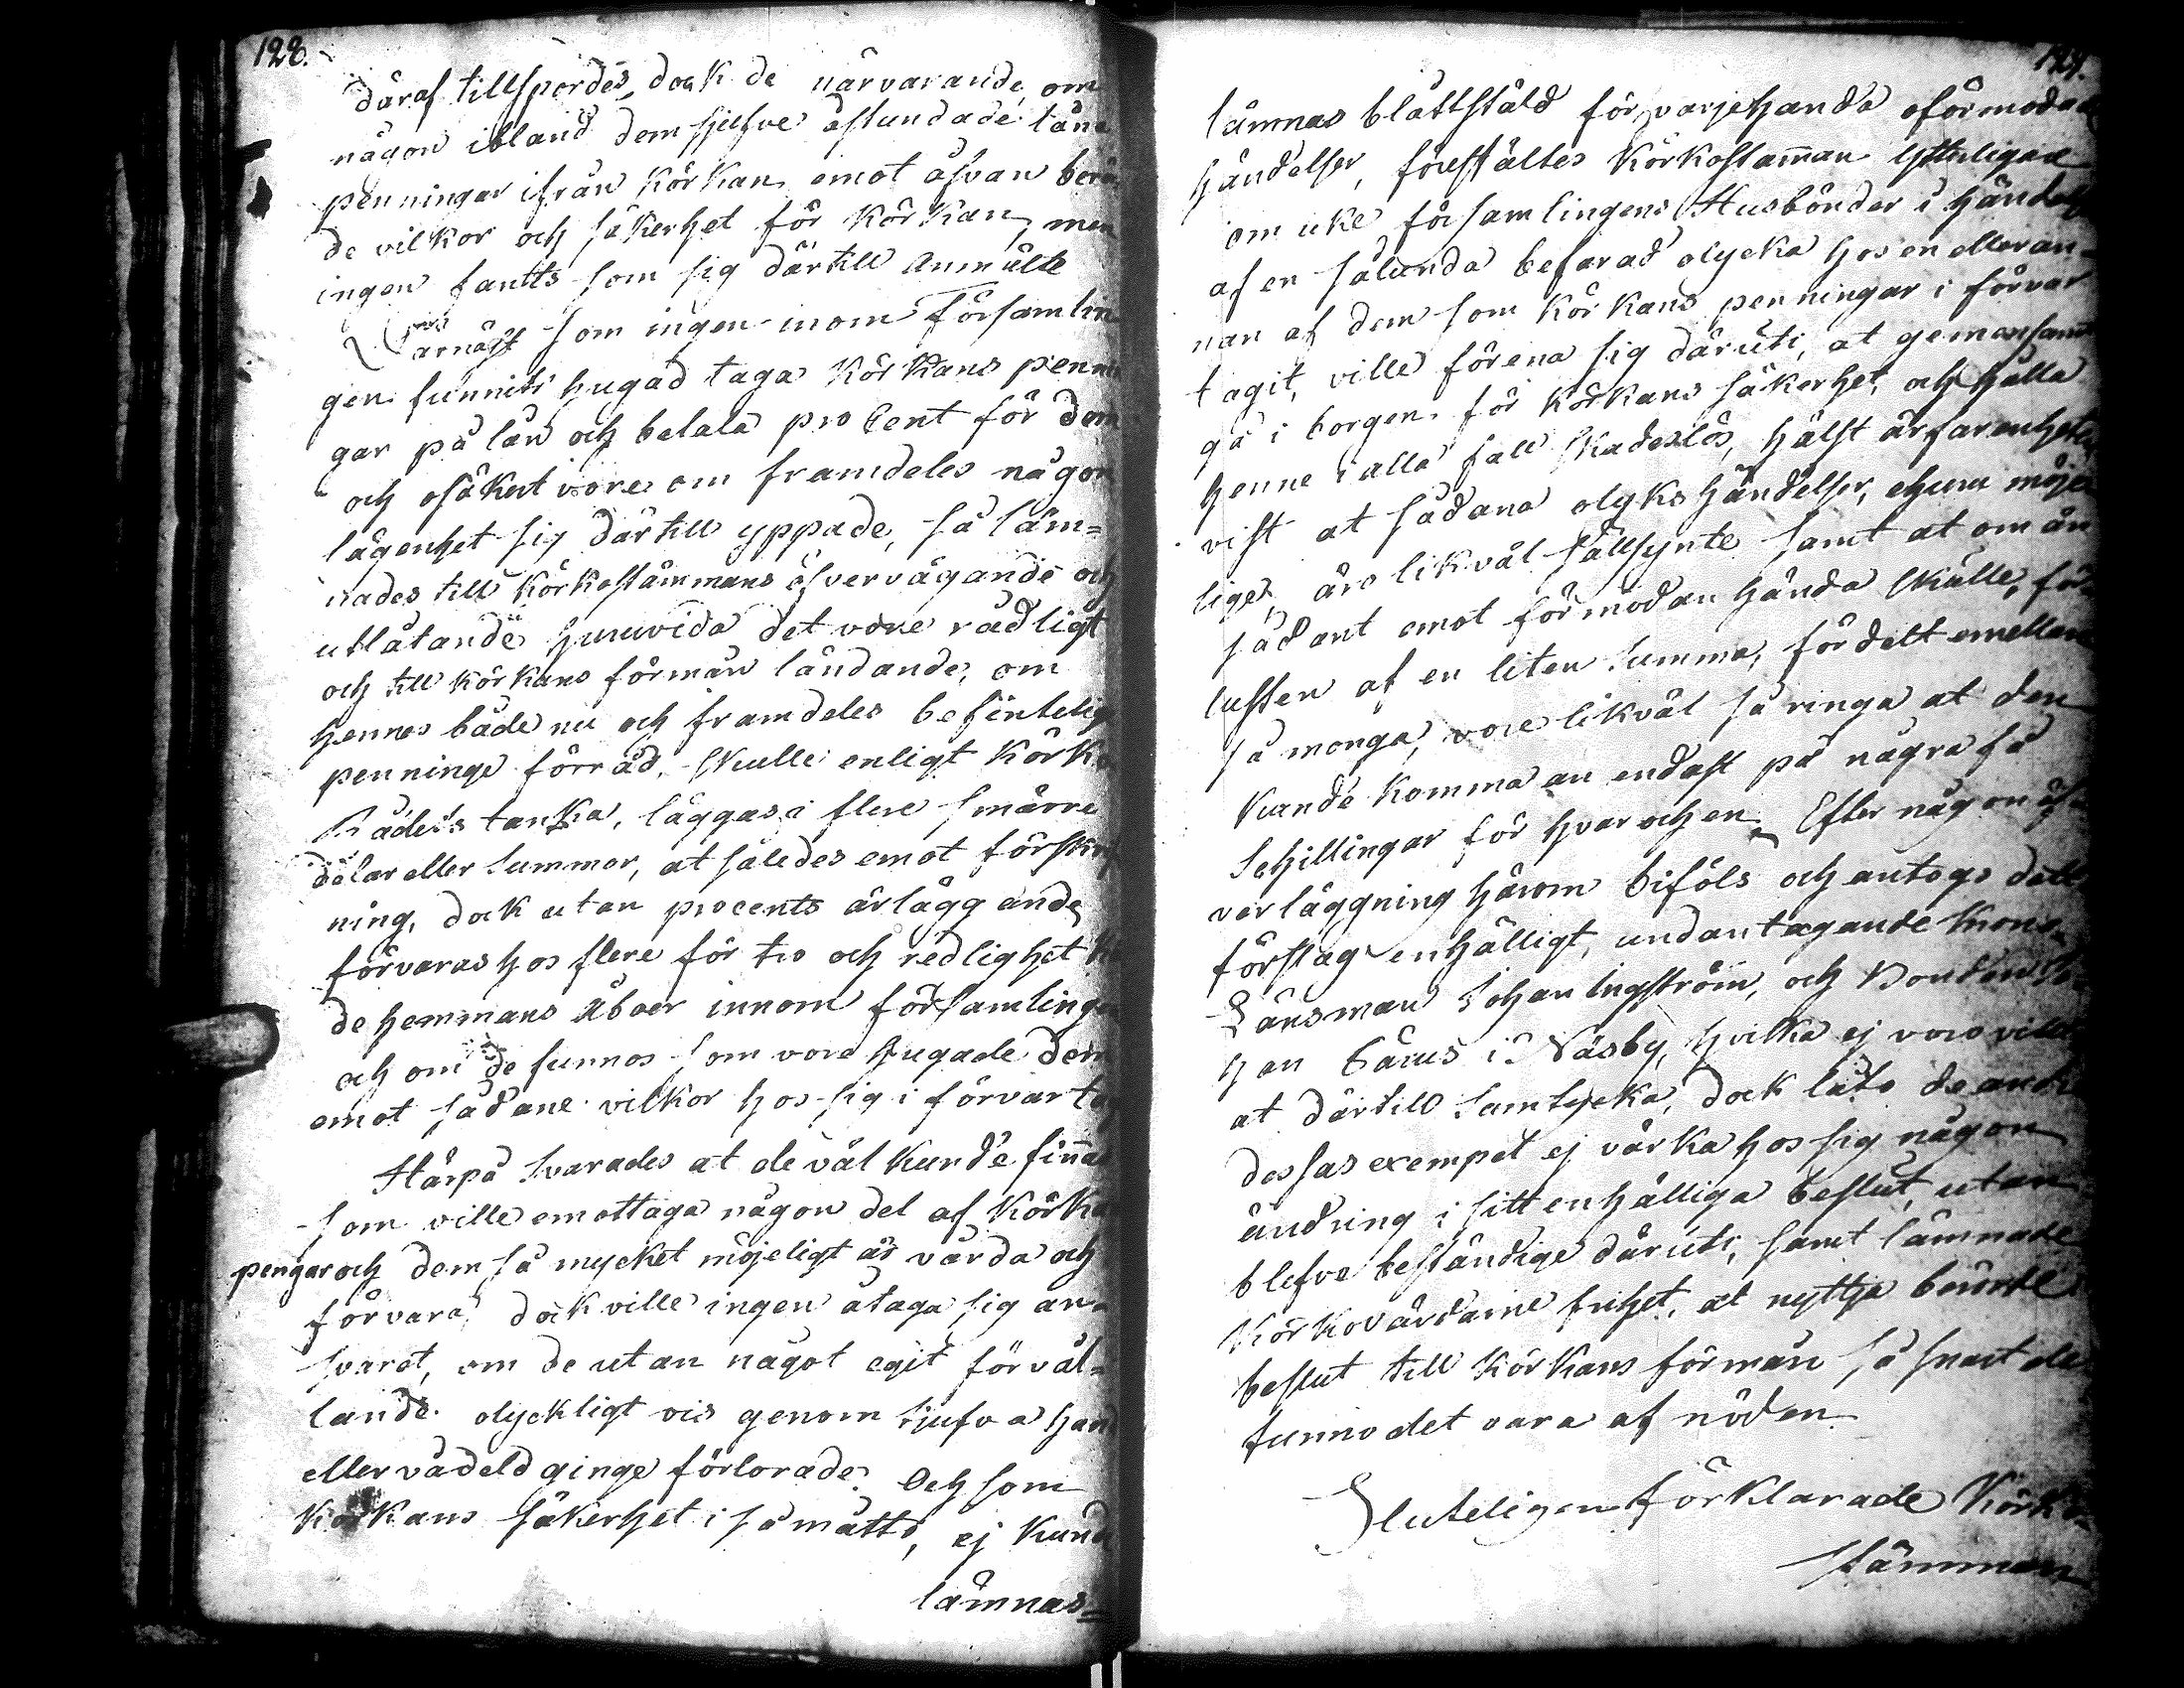 128.
däraf tillspordes, dock de närvarande, om
någon ibland dem sjelfve åstundade låna
penningar ifrån Körkan emot åfvan berör
de vilkor och säkerhet för Körkan, men
ingen fantts som sig därtill anmälte
Därnäst som ingen inom Församlin
gen funnits hugad taga Körkans pennin
gar på lån och betala pro Cent för dem
och osäkert vore om framdeles någon
lägenhet sig därtill yppade, så läm=
nades till Körkostämmans öfvervägande och
utlåtande huruvida det vore rådligt
och till Körkans förmån ländande, om
hennes både nu och framdeles befintelige
penninge förråd, skulle enligt Körko
Rådets tanka, läggas i flere smärre
delar eller Summor, at således emot förskrif
ning, dock utan procents ärläggande
förvaras hos flere för tro och redlighet
de hemmans Åboer innom församlingen
och om de funnos som vore hugade dem
emot sådane vilkor hos sig i förvar ta
Härpå svarades at de väl kunde finnas
som ville emottaga någon del af Körkans
pengar och dem så mycket möjeligt är vårda och
förvara, dock ville ingen åtaga sig an=
svaret, om de utan något egit förvål=
lande olyckligt vis genom tjufva hand
eller vådeld ginge förlorade. Och som
Körkans säkerhet i så måtto, ej kund
lämnas=
129.
lämnas blåttstäld för varjehanda oförmodade
händelser, föreställes Körkostämman ytterligare
om icke församlingens Husbönder i händelse
af en sålunda befarad olycka hos en eller an=
nan af dem som Körkans penningar i förvar
tagit, ville förena sig däruti, at gemensamt
gå i borgen för Körkans säkerhet, och hålla
henne i alla fall skadeslös, hälst ärfarenheten
vist at sådana olyks händelser, ehuru möje
lige, äro likväl sällsynte samt at om än
sådant emot förmodan hända skulle, för
lusten af en liten Summa, fördelt emellan
så monga, vore likväl så ringa at den
kunde komma an endast på några få
Schillingar för hvar och en. Efter någon öf
verläggning härom biföls och antogs dett
förslag enhälligt, undantagande Krono
Länsman Johan Engström, och Bonden
han Lärus i Näsby, hvilka ej voro ville
at därtill Samtycka, dock läto de andr
dessas exempel ej värka hos sig någon
ändring i sitt enhälliga beslut, utan
blefvo beständige däruti, samt lämnade
Körkovärdarne frihet, at nyttja berörde
beslut till Körkans förmån så snart de
funno det vara af nöden
Sluteligen förklarade Körko=
stämman